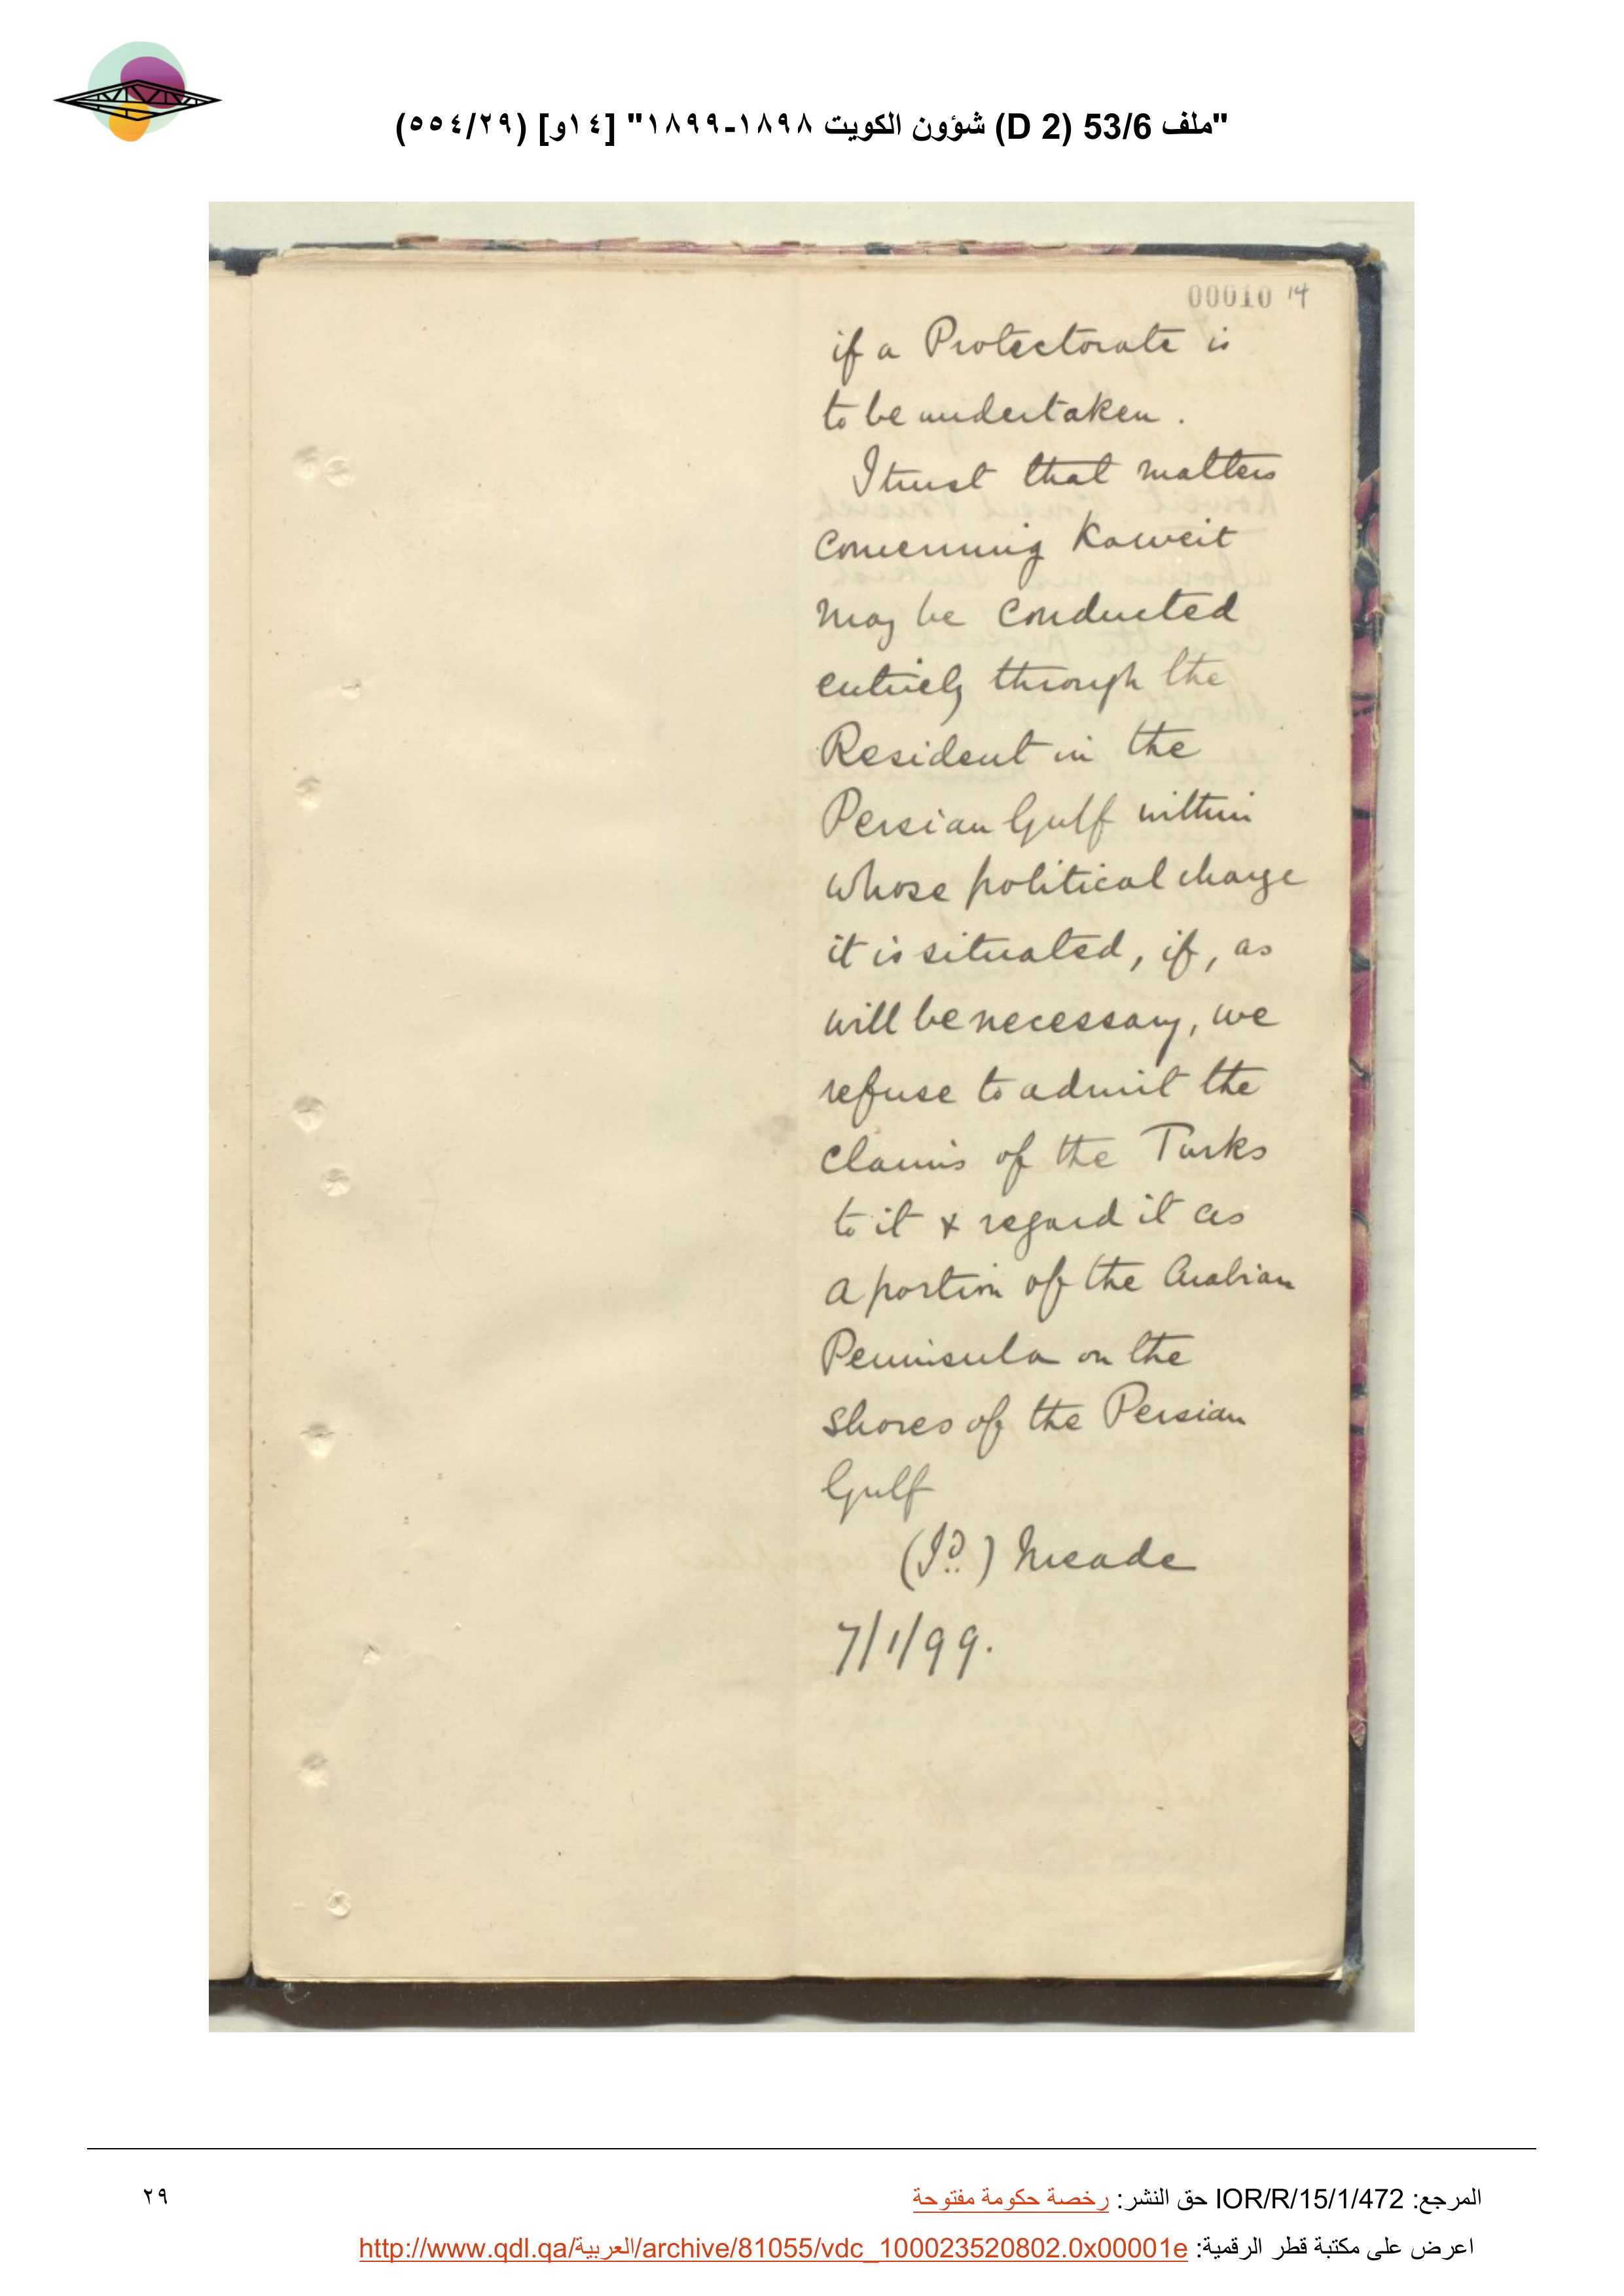 "ملف 53/6 (D 2) شؤون الكويت ١٨٩٨-١٨٩٩" [١٤و] (٥٥٤/٢٩)
00010 14
if a Protectorate is
to be undertaken.
I trust that matters
concerning Koweit
may be conducted
entirely through the
Resident in the
Persian Gulf within
whose political charge
it is situated, if, as
will be necessary, we
refuse to admit the
claims of the Turks
to it & regard it as
a portion of the Arabian
Peninsula on the
shores of the Persian
Gulf
(Sd.) Meade
7/1/99.
المرجع: IOR/R/15/1/472 حق النشر: رخصة حكومة مفتوحة
٢٩
اعرض على مكتبة قطر الرقمية: http://www.qdl.qa/العربية/archive/81055/vdc_100023520802.0x00001e